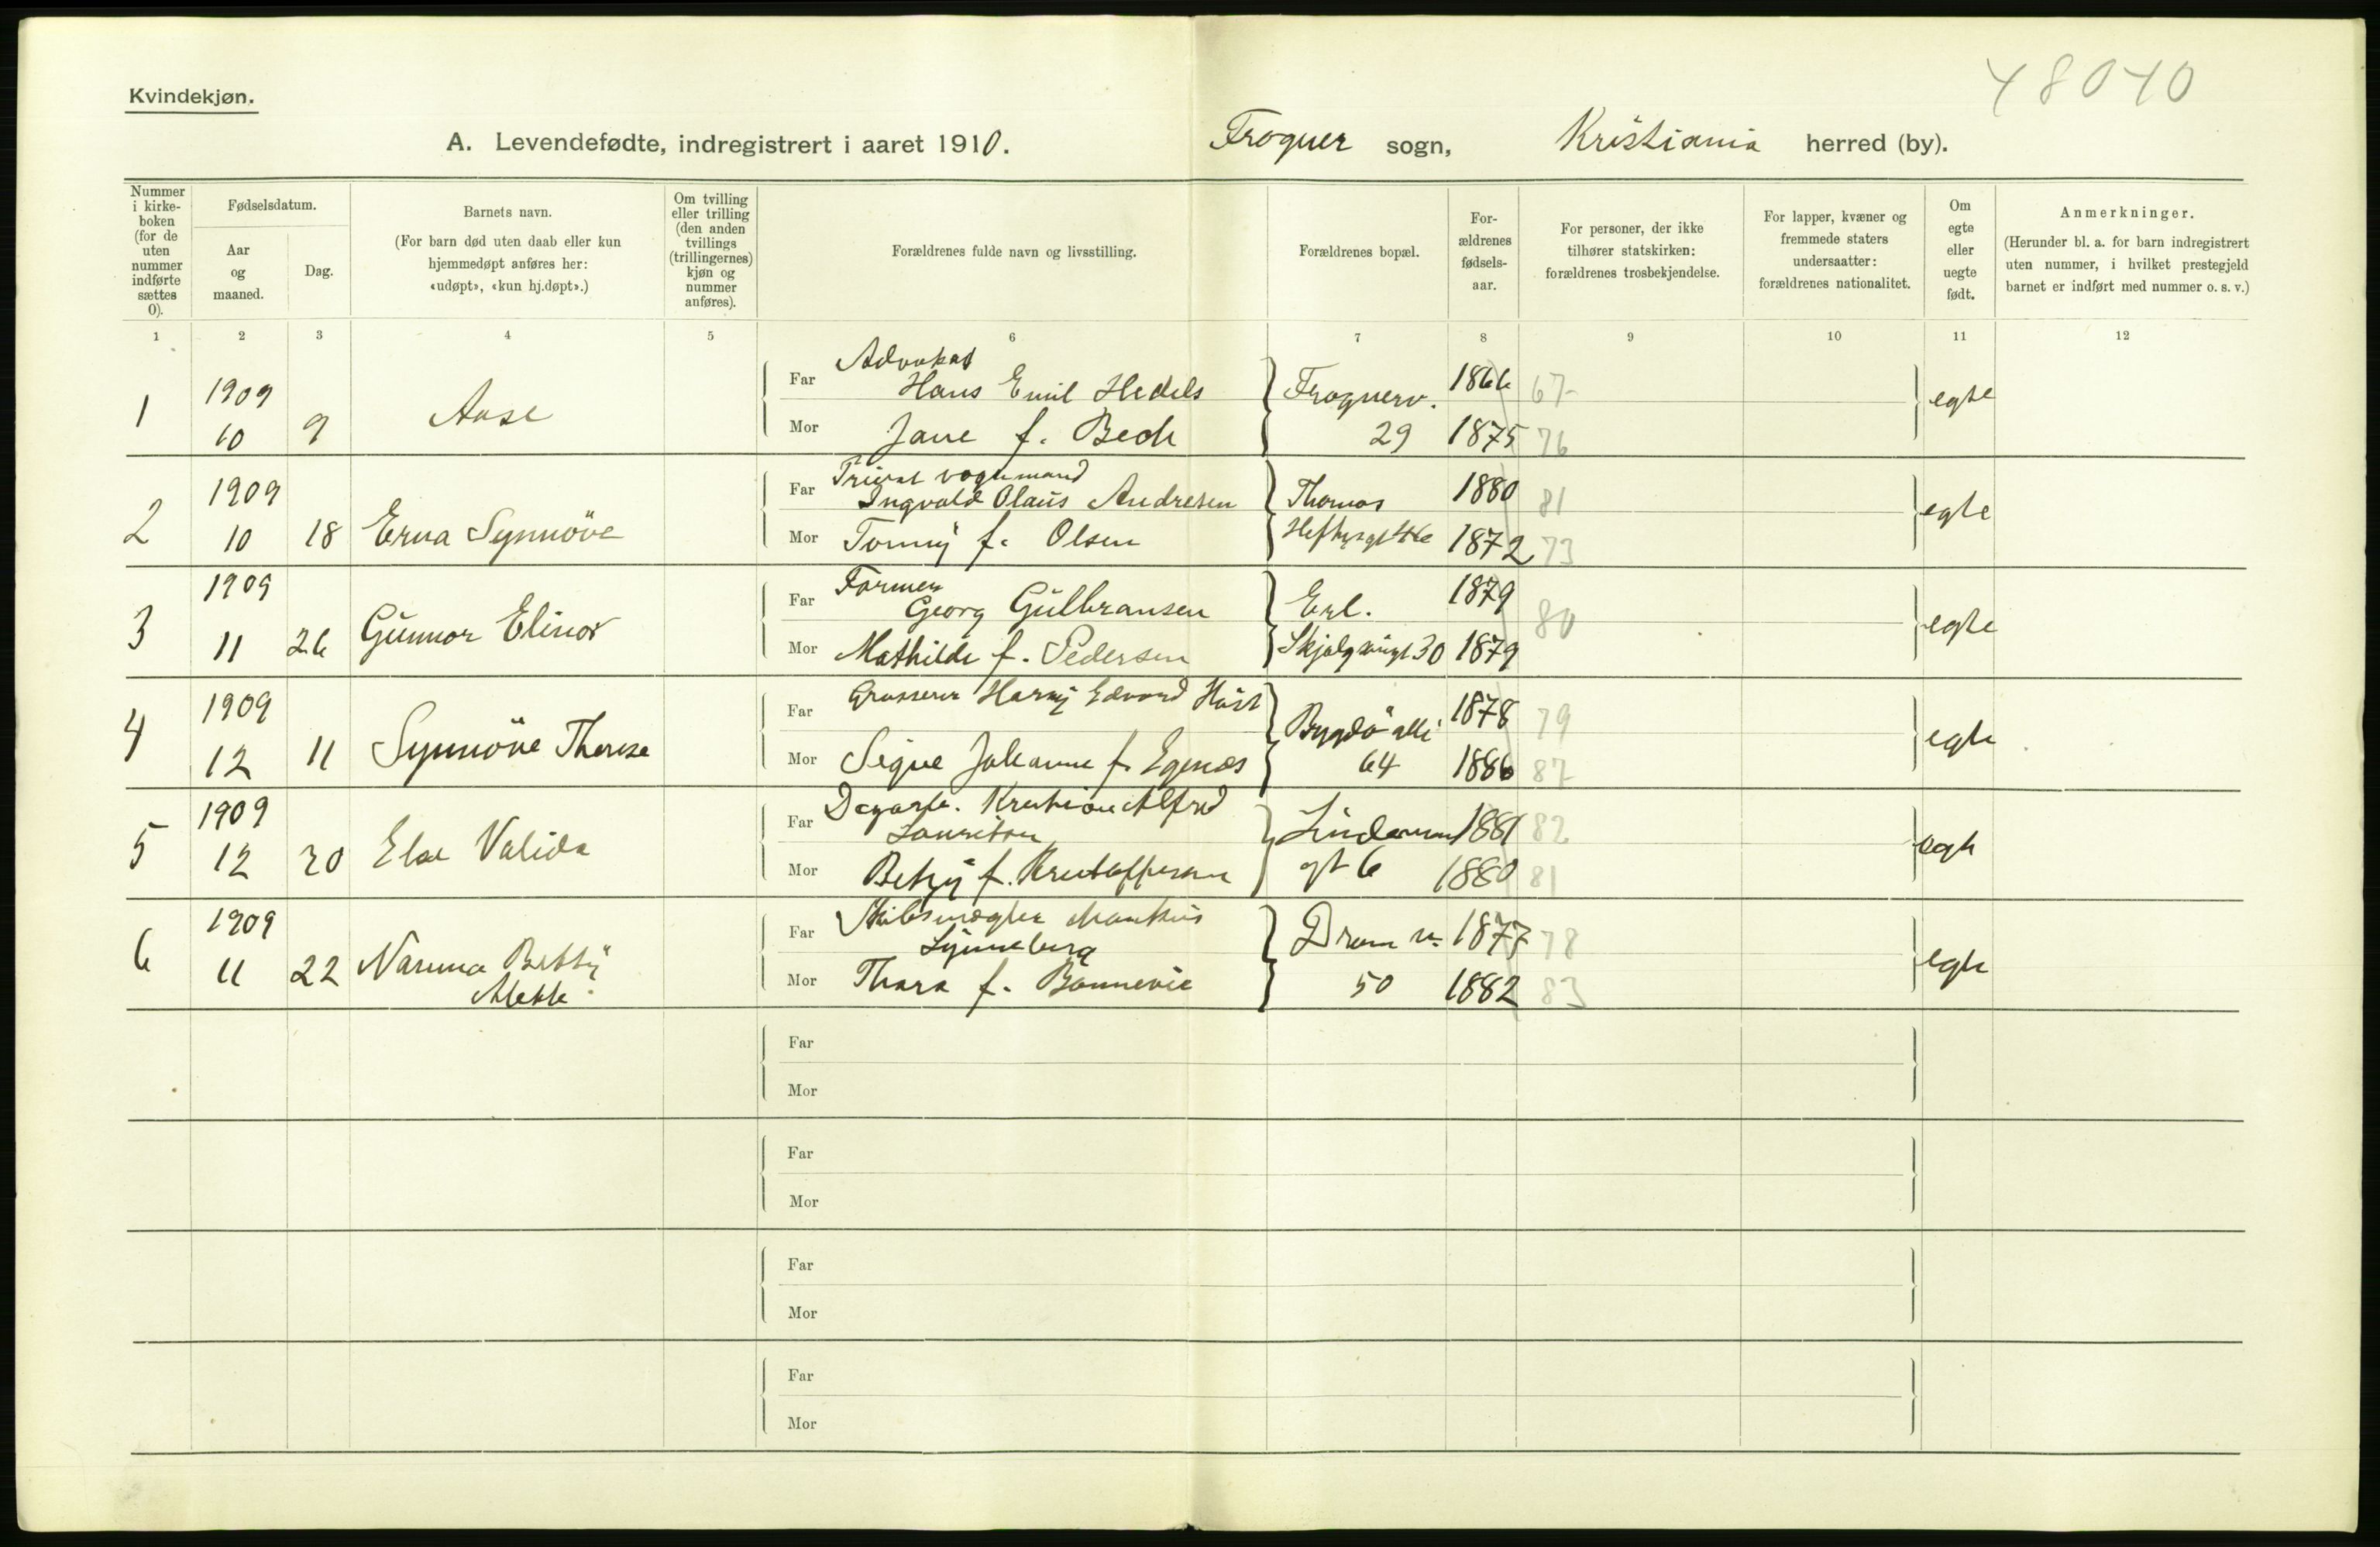 48040
Kvindekjøn.
A. Levendefødte, indregistrert i aaret 1910. Frogner sogn, Kristiania herred (by).
Nummer i kirke-boken (for de uten nummer indførte sættes 0).
Fødselsdatum.
Aar og maaned.
Dag.
Barnets navn.
(For barn død uten daab eller kun hjemmedøpt anføres her: «udøpt», «kun hj.døpt».)
Om tvilling eller trilling (den anden tvillings (trillingernes) kjøn og nummer anføres).
Forældrenes fulde navn og livsstilling.
Forældrenes bopæl.
For-ældrenes fødsels-aar.
For personer, der ikke tilhører statskirken: forældrenes trosbekjendelse.
For lapper, kvæner og fremmede staters undersaatter: forældrenes nationalitet.
Om egte eller uegte født.
Anmerkninger.
(Herunder bl. a. for barn indregistrert uten nummer, i hvilket prestegjeld barnet er indført med nummer o. s. v.)
1 2 3 4 5 6 7 8 9 10 11 12
1 1909 10 9 Aase
Far Advokat Hans Emil Hedels Frognerv. 1866 67 egte
Mor Jane f. Bech 29 1875 76
2 1909 10 18 Erna Synnöve
Far Privat vognmand Ingvald Olaus Andresen Thomas 1880 81 egte
Mor Tonny f. Olsen Heftyesgt 1872 73
3 1909 11 26 Gunnor Elinor
Far Former Georg Gulbransen Erl. 1879 80 egte
Mor Mathilde f. Pedersen 30 1879
4 1909 12 11 Synnöve Therese
Far Grosserer Harry Edvard Høst Bygdö alle 1878 79 egte
Mor Signe Johanne f. Egenæs 64 1886 87
5 1909 12 20 Else Valida
Far Kristian Alfred Lauritzen Lindemans 1881 82 egte
Mor Betzy f. Kristoffersen gt 6 1880 81
6 1909 11 22 Nanna Betty
Far Skibsmægler Markus Lynneberg Dram v. 1877 78 egte
Mor Thora f. Bonnevie 50 1882 83
Far
Mor
Far
Mor
Far
Mor
Far
Mor